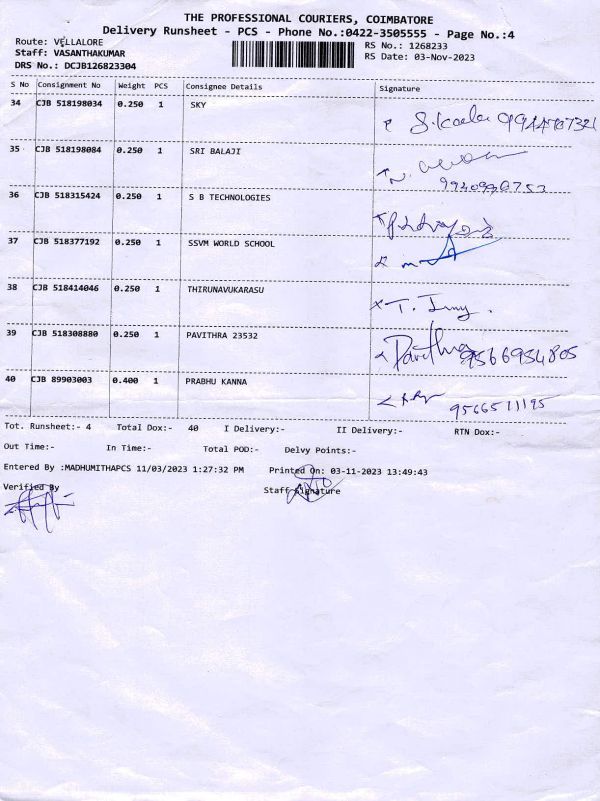 THE PROFESSIONAL COURIERS, COIMBATORE
Delivery Runsheet - PCS - Phone No.:0422-3505555 - Page No.:4
Route: VELLALORE
Staff: VASANTHAKUMAR
DRS No.: DCJB126823304
RS No.: 1268233
RS Date: 03-Nov-2023
S No Consignment No Weight PCS Consignee Details Signature
34 CJB 518198034 0.250 1 SKY
35 CJB 518198084 0.250 1 SRI BALAJI
36 CJB 518315424 0.250 1 S B TECHNOLOGIES
37 CJB 518377192 0.250 1 SSVM WORLD SCHOOL
38 CJB 518414046 0.250 1 THIRUNAVUKARASU
39 CJB 518308880 0.250 1 PAVITHRA 23532 Pavithra 9566954805
40 CJB 89903003 0.400 1 PRABHU KANNA 9566511195
Tot. Runsheet:- 4 Total Dox:- 40 I Delivery:- II Delivery:- RTN Dox:-
Out Time:- In Time:- Total POD:- Delvy Points:-
Entered By :MADHUMITHAPCS 11/03/2023 1:27:32 PM Printed On: 03-11-2023 13:49:43
Verified By Staff Signature